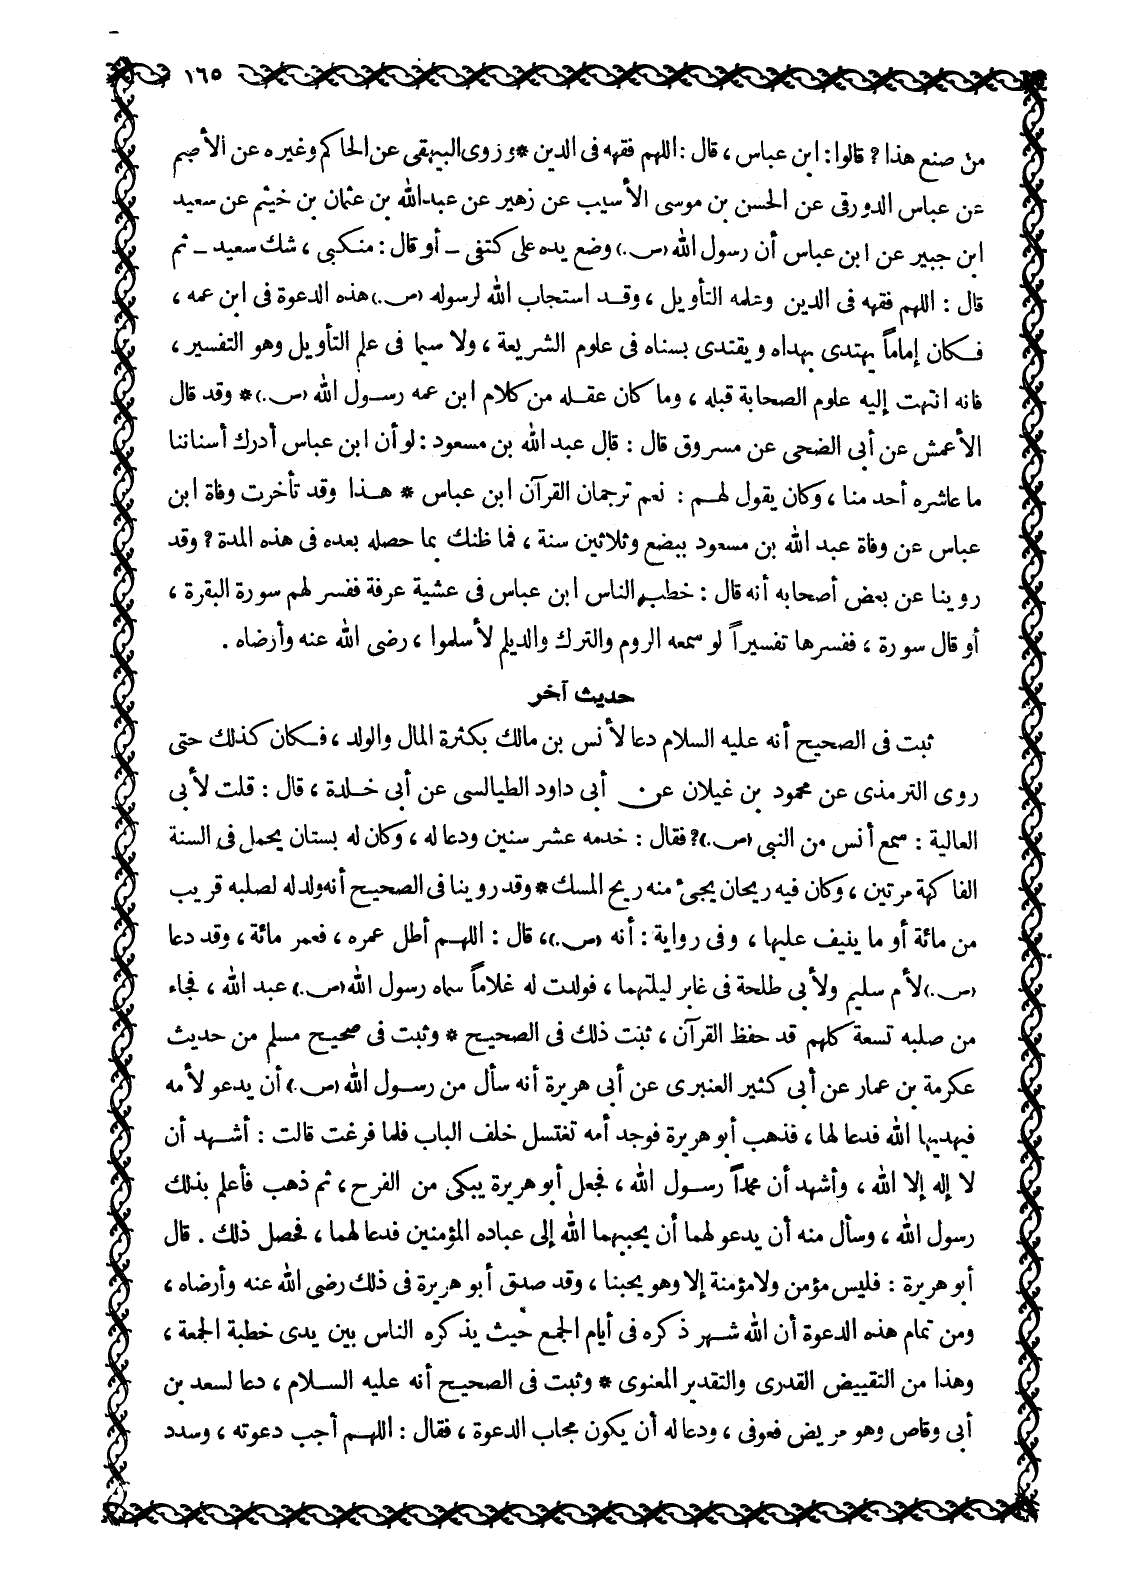 ١٦٥
من صنع هذا ? قالوا : ابن عباس ، قال : اللهم فقهه فى الدين * وروى البيهقى عن الحاكم وغيره عن الأصم
عن عباس الدورقى عن الحسن بن موسى الأسيب عن زهير عن عبد الله بن عثمان بن خيثم عن سعيد
ابن جبير عن ابن عباس أن رسول الله (ص.) وضع يده على كتفى ــ أو قال : منكبى ، شك سعيد ــ ثم
قال : اللهم فقهه فى الدين وعلمه التأويل ، وقد استجاب الله لرسوله (ص.) هذه الدعوة فى ابن عمه ،
فكان إماماً يهتدى بهداه ويقتدى بسناه فى علوم الشريعة ، ولا سيما فى علم التأويل وهو التفسير ،
فانه انتهت إليه علوم الصحابة قبله ، وما كان عقله من كلام ابن عمه رسول الله (ص.) * وقد قال
الأعمش عن أبى الضحى عن مسروق قال : قال عبد الله بن مسعود : لو أن ابن عباس أدرك أسناننا
ما عاشره أحد منا ، وكان يقول لهم : نعم ترجمان القرآن ابن عباس * هذا وقد تأخرت وفاة ابن
عباس عن وفاة عبد الله بن مسعود ببضع وثلاثين سنة ، فما ظنك بما حصله بعده فى هذه المدة ? وقد
روينا عن بعض أصحابه أنه قال : خطب الناس ابن عباس فى عشية عرفة ففسر لهم سورة البقرة ،
أو قال سورة ، ففسرها تفسيراً لو سمعه الروم والترك والديلم لأسلموا ، رضى الله عنه وأرضاه .
حديث آخر
ثبت فى الصحيح أنه عليه السلام دعا لأنس بن مالك بكثرة المال والولد ، فكان كذلك حتى
روى الترمذى عن محمود بن غيلان عن أبى داود الطيالسى عن أبى خلدة ، قال : قلت لأبى
العالية : سمع أنس من النبى (ص.) ? فقال : خدمه عشر سنين ودعا له ، وكان له بستان يحمل فى السنة
الفاكهة مرتين ، وكان فيه ريحان يجىء منه ريح المسك * وقد روينا فى الصحيح أنه ولد له لصلبه قريب
من مائة أو ما ينيف عليها ، وفى رواية : أنه (ص.) ، قال : اللهم أطل عمره ، فعمر مائة ، وقد دعا
(ص.) لأم سليم ولأبى طلحة فى غابر ليلتهما ، فولدت له غلاماً سماه رسول الله (ص.) عبد الله ، فجاء
من صلبه تسعة كلهم قد حفظ القرآن ، ثبت ذلك فى الصحيح * وثبت فى صحيح مسلم من حديث
عكرمة بن عمار عن أبى كثير العنبرى عن أبى هريرة أنه سأل من رسول الله (ص.) أن يدعو لأمه
فيهديها الله فدعا لها ، فذهب أبو هريرة فوجد أمه تغتسل خلف الباب فلما فرغت قالت : أشهد أن
لا إله إلا الله ، وأشهد أن محمداً رسول الله ، فجعل أبو هريرة يبكى من الفرح ، ثم ذهب فأعلم بذلك
رسول الله ، وسأل منه أن يدعو لهما أن يحببهما الله إلى عباده المؤمنين فدعا لهما ، فحصل ذلك . قال
أبو هريرة : فليس مؤمن ولا مؤمنة إلا وهو يحبنا ، وقد صدق أبو هريرة فى ذلك رضى الله عنه وأرضاه ،
ومن تمام هذه الدعوة أن الله شهر ذكره فى أيام الجمع حيث يذكره الناس بين يدى خطبة الجمعة ،
وهذا من التقييض القدرى والتقدير المعنوى * وثبت فى الصحيح أنه عليه السلام ، دعا لسعد بن
أبى وقاص وهو مريض فعوفى ، ودعا له أن يكون مجاب الدعوة ، فقال : اللهم أجب دعوته ، وسدد